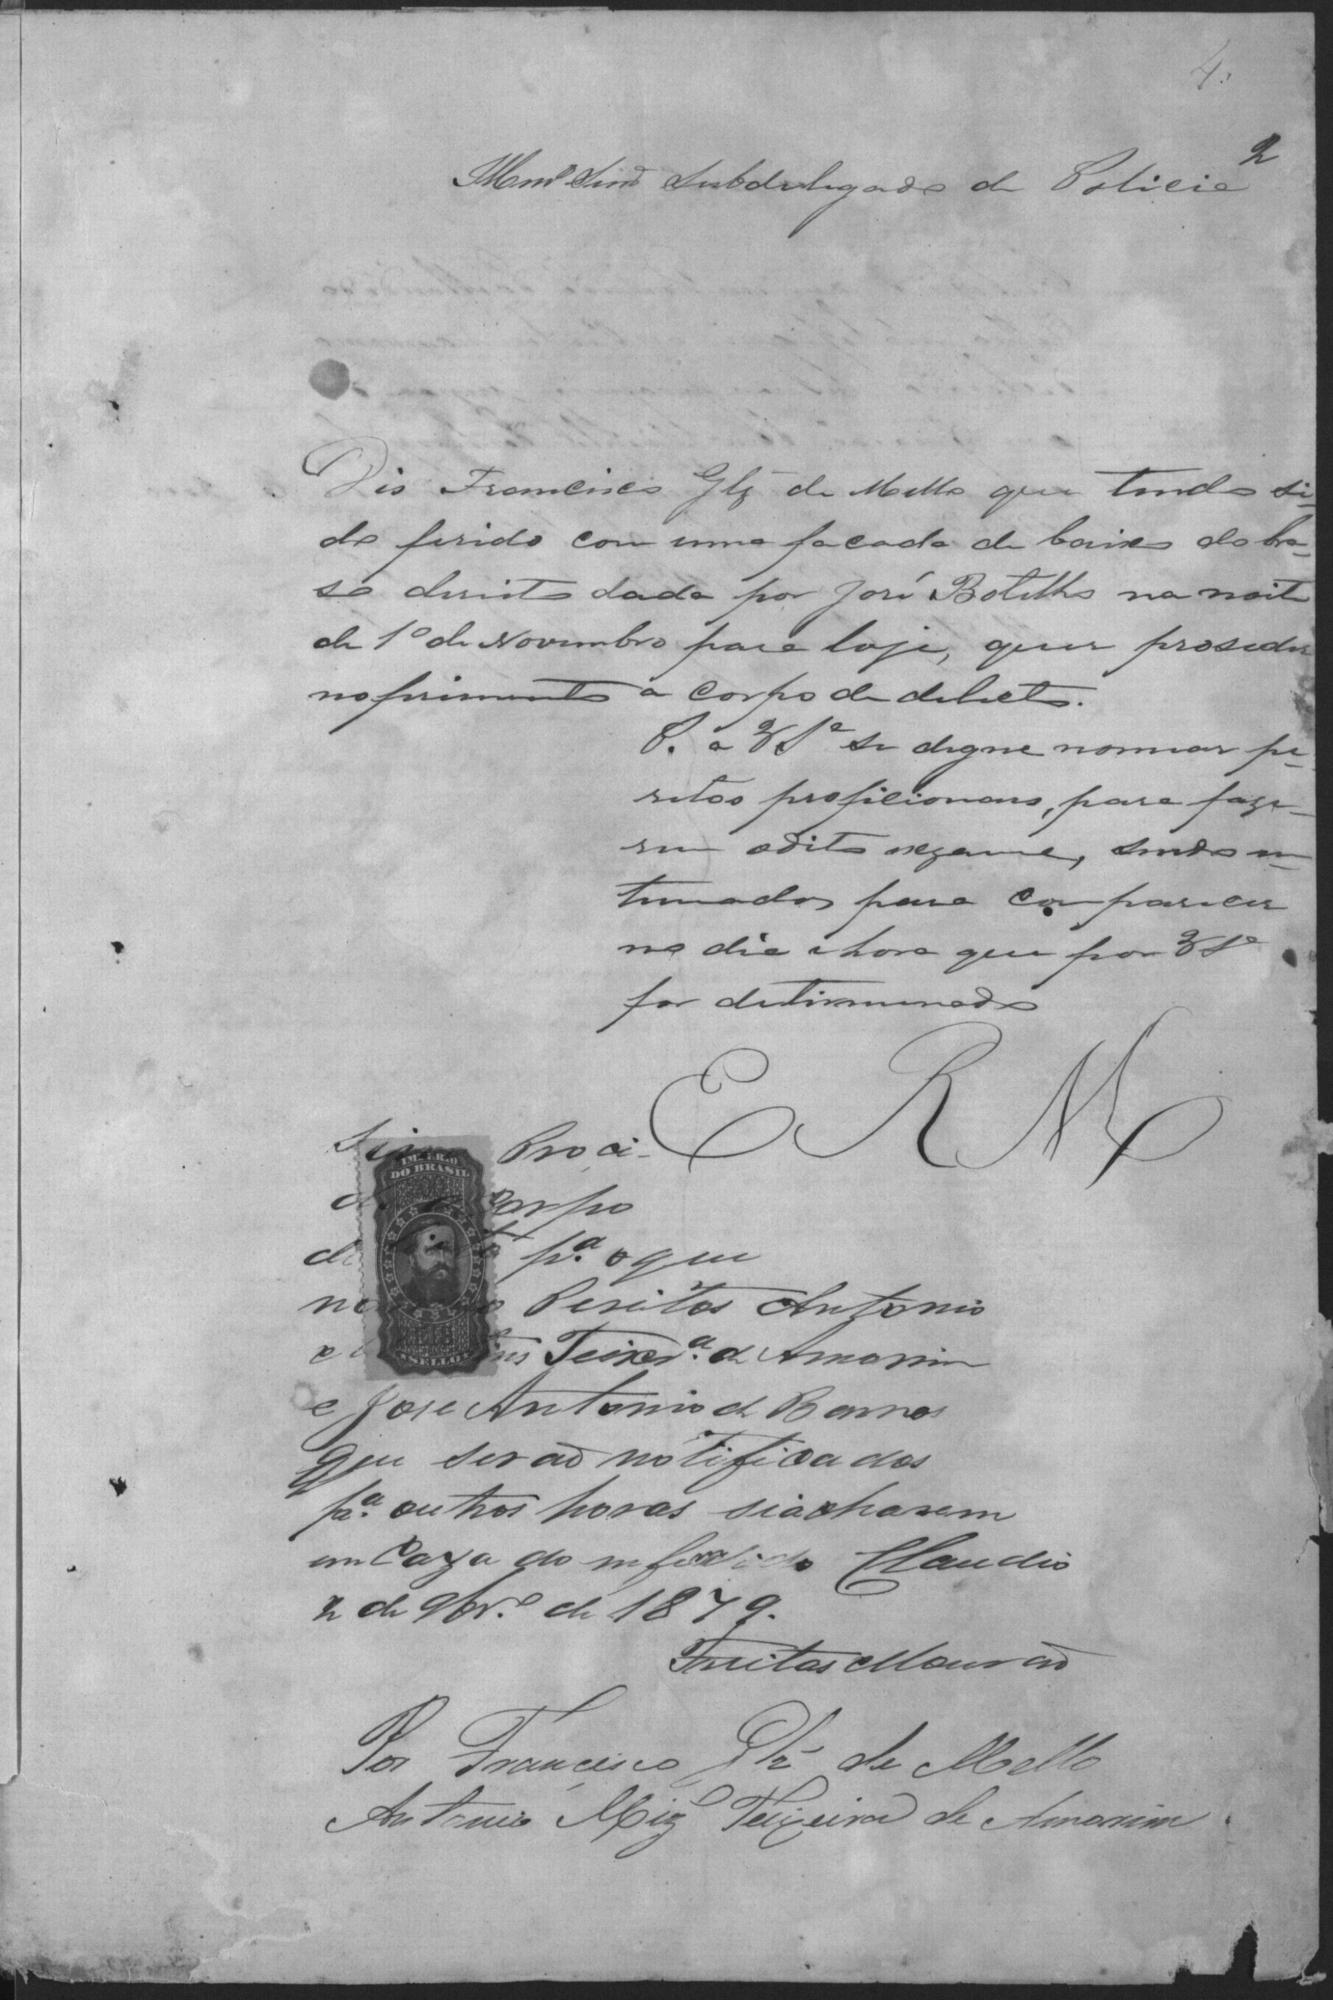 4.
2
Illmo Snr Subdelegado de Policia
Dis Francisco Glz de Mello que tendo si-
do ferido com uma facada de baixo do bra-
so direito dada por José Botelho na noite
de 1º de Novembro para hoje, quer proseder
no firimento a corpo de delicto.
P. a V Sª se digne nomear pe-
ritos proficionaes, para faze-
rem o dito exzame, sendo in-
timados para comparecer
no dia e hora que por V Sª
for detirminado
E R M
Sim Proci-
corpo
pª. o que
Peritos Antonio
Teixrª. de Amorim
e Jose Antonio de Barros
que serao notificados
pª. outros horas si acharem
em Caza do Claudio
2 de 9br.º de 1879.
Freitas Mourao
IMPERIO
DO BRASIL
SELLO
Por Francisco Glz de Mello
Antonio Teixeira de Amorim